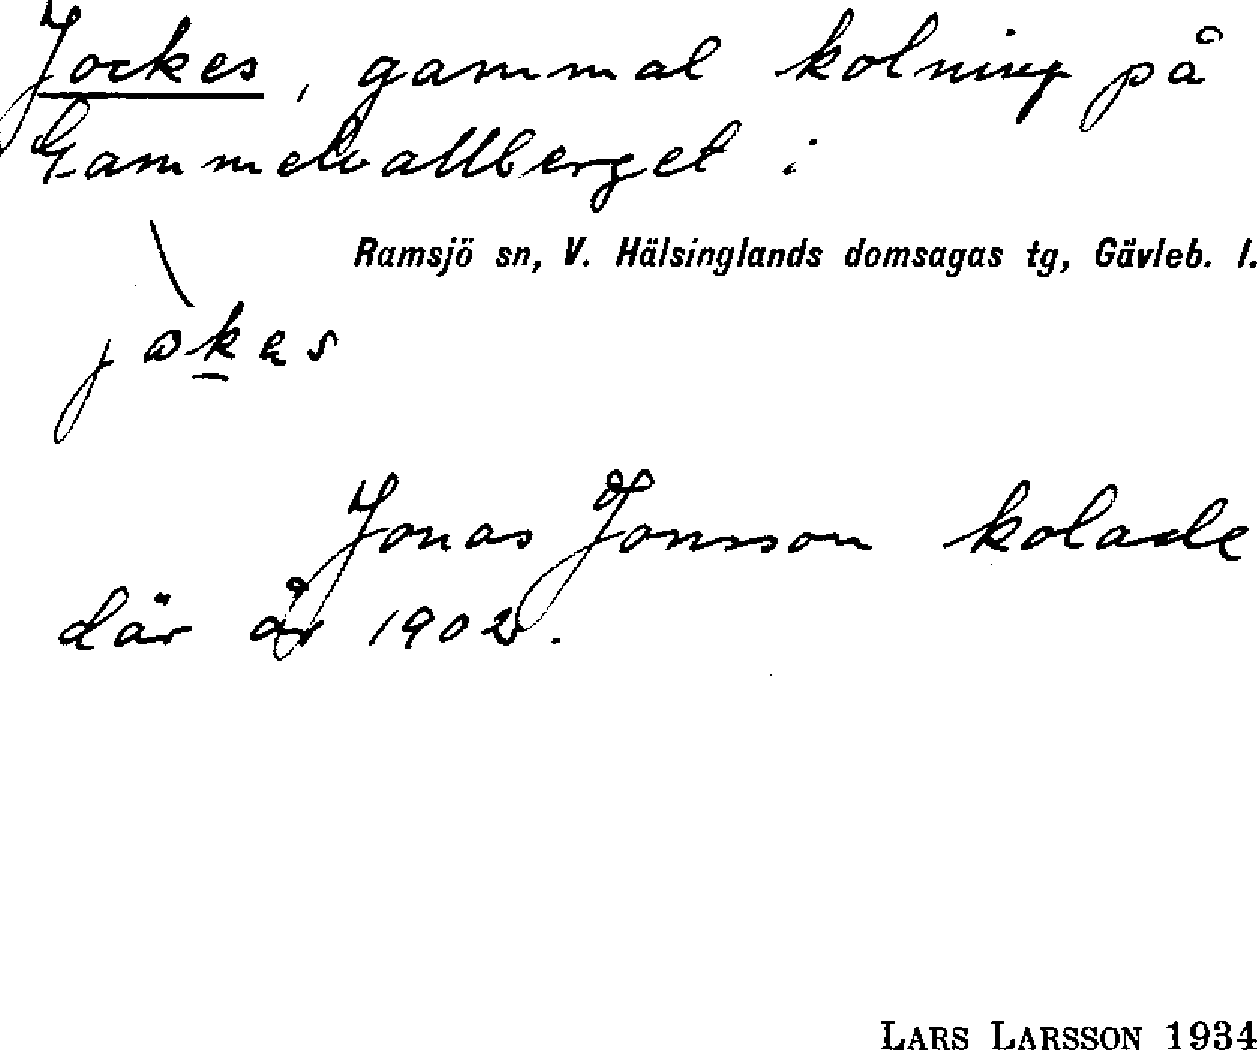 Jockes, gammal kolning på
Gammelvallberget i
Ramsjö sn, V. Hälsinglands domsagas tg, Gävleb. l.
jɷkes
Jonas Jonsson kolade
där år 1902.
LARS LARSSON 1934